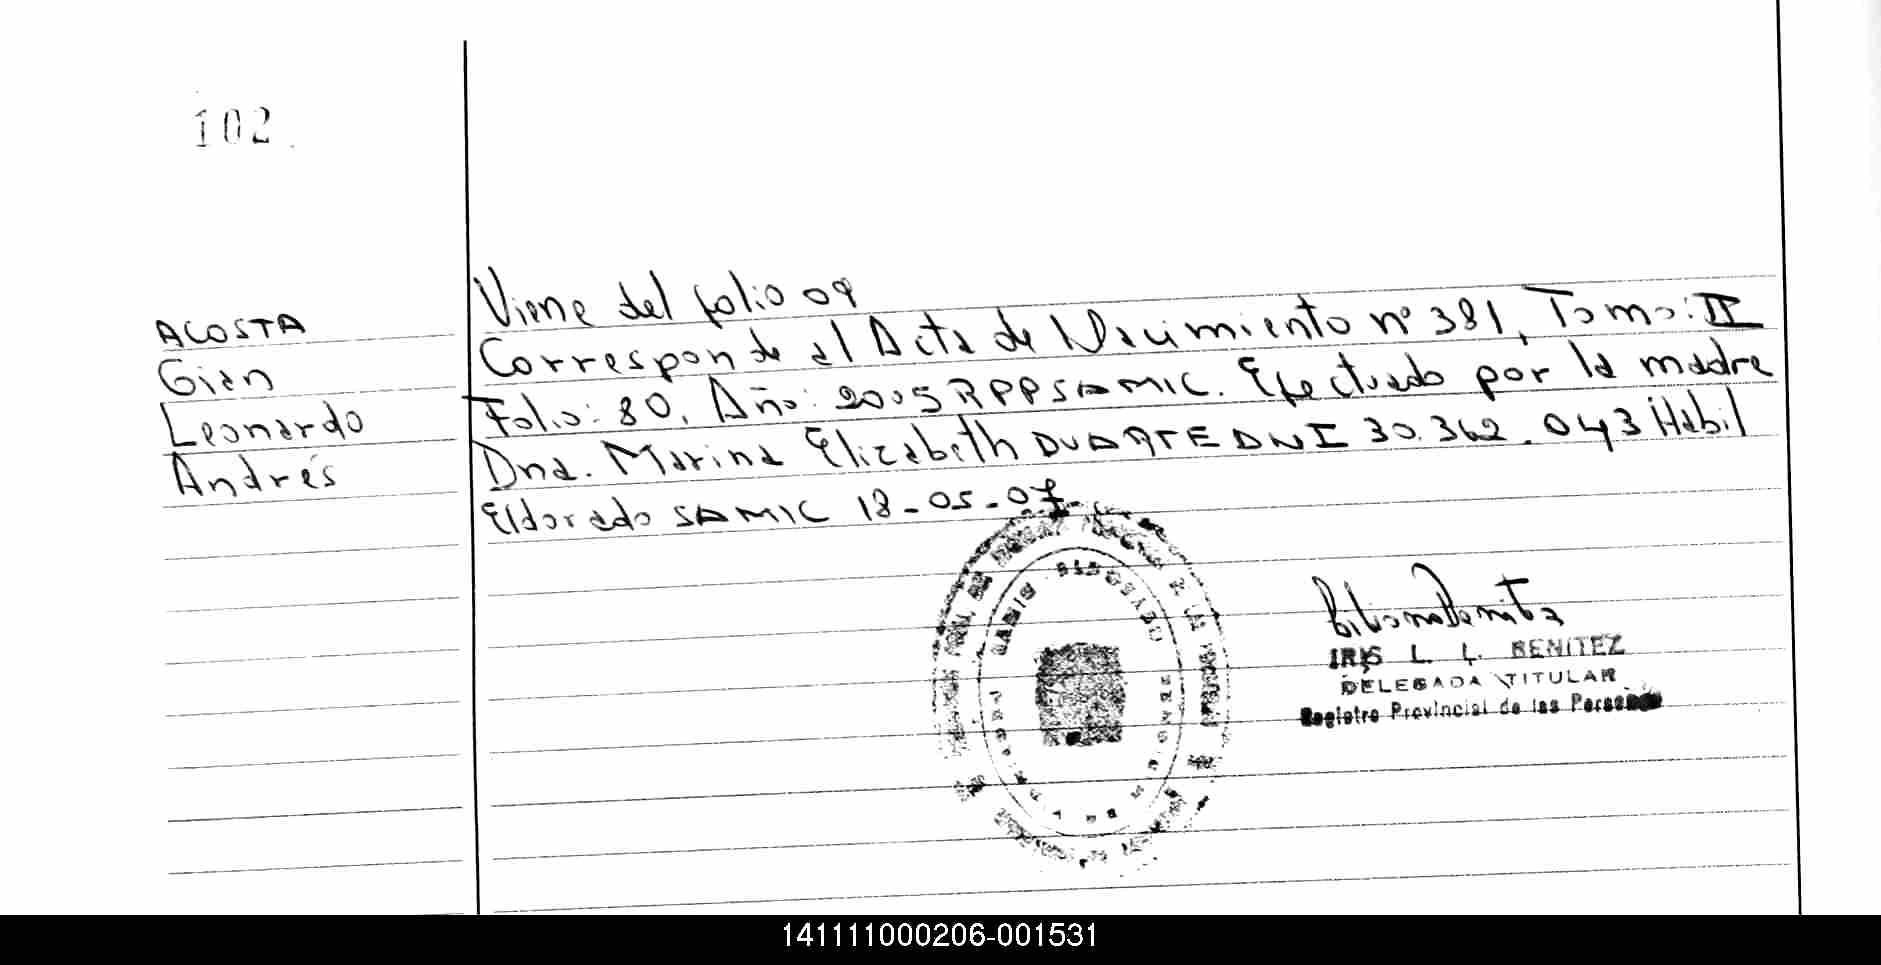 102
Viene del folio 09
ACOSTA
Corresponde al Acta de Nacimiento nº 381, Tomo: II
Gian
Folio: 80, Año: 2005 RPPSAMIC. Efectuado por la madre
Leonardo
Dna. Marina Elizabeth DUARTE DNI 30.362.043 Habil
Andrés
Eldorado SAMIC 18-05-07
IRIS L. L. BENITEZ
DELEGADA TITULAR
Registro Provincial de las Personas
141111000206-001531